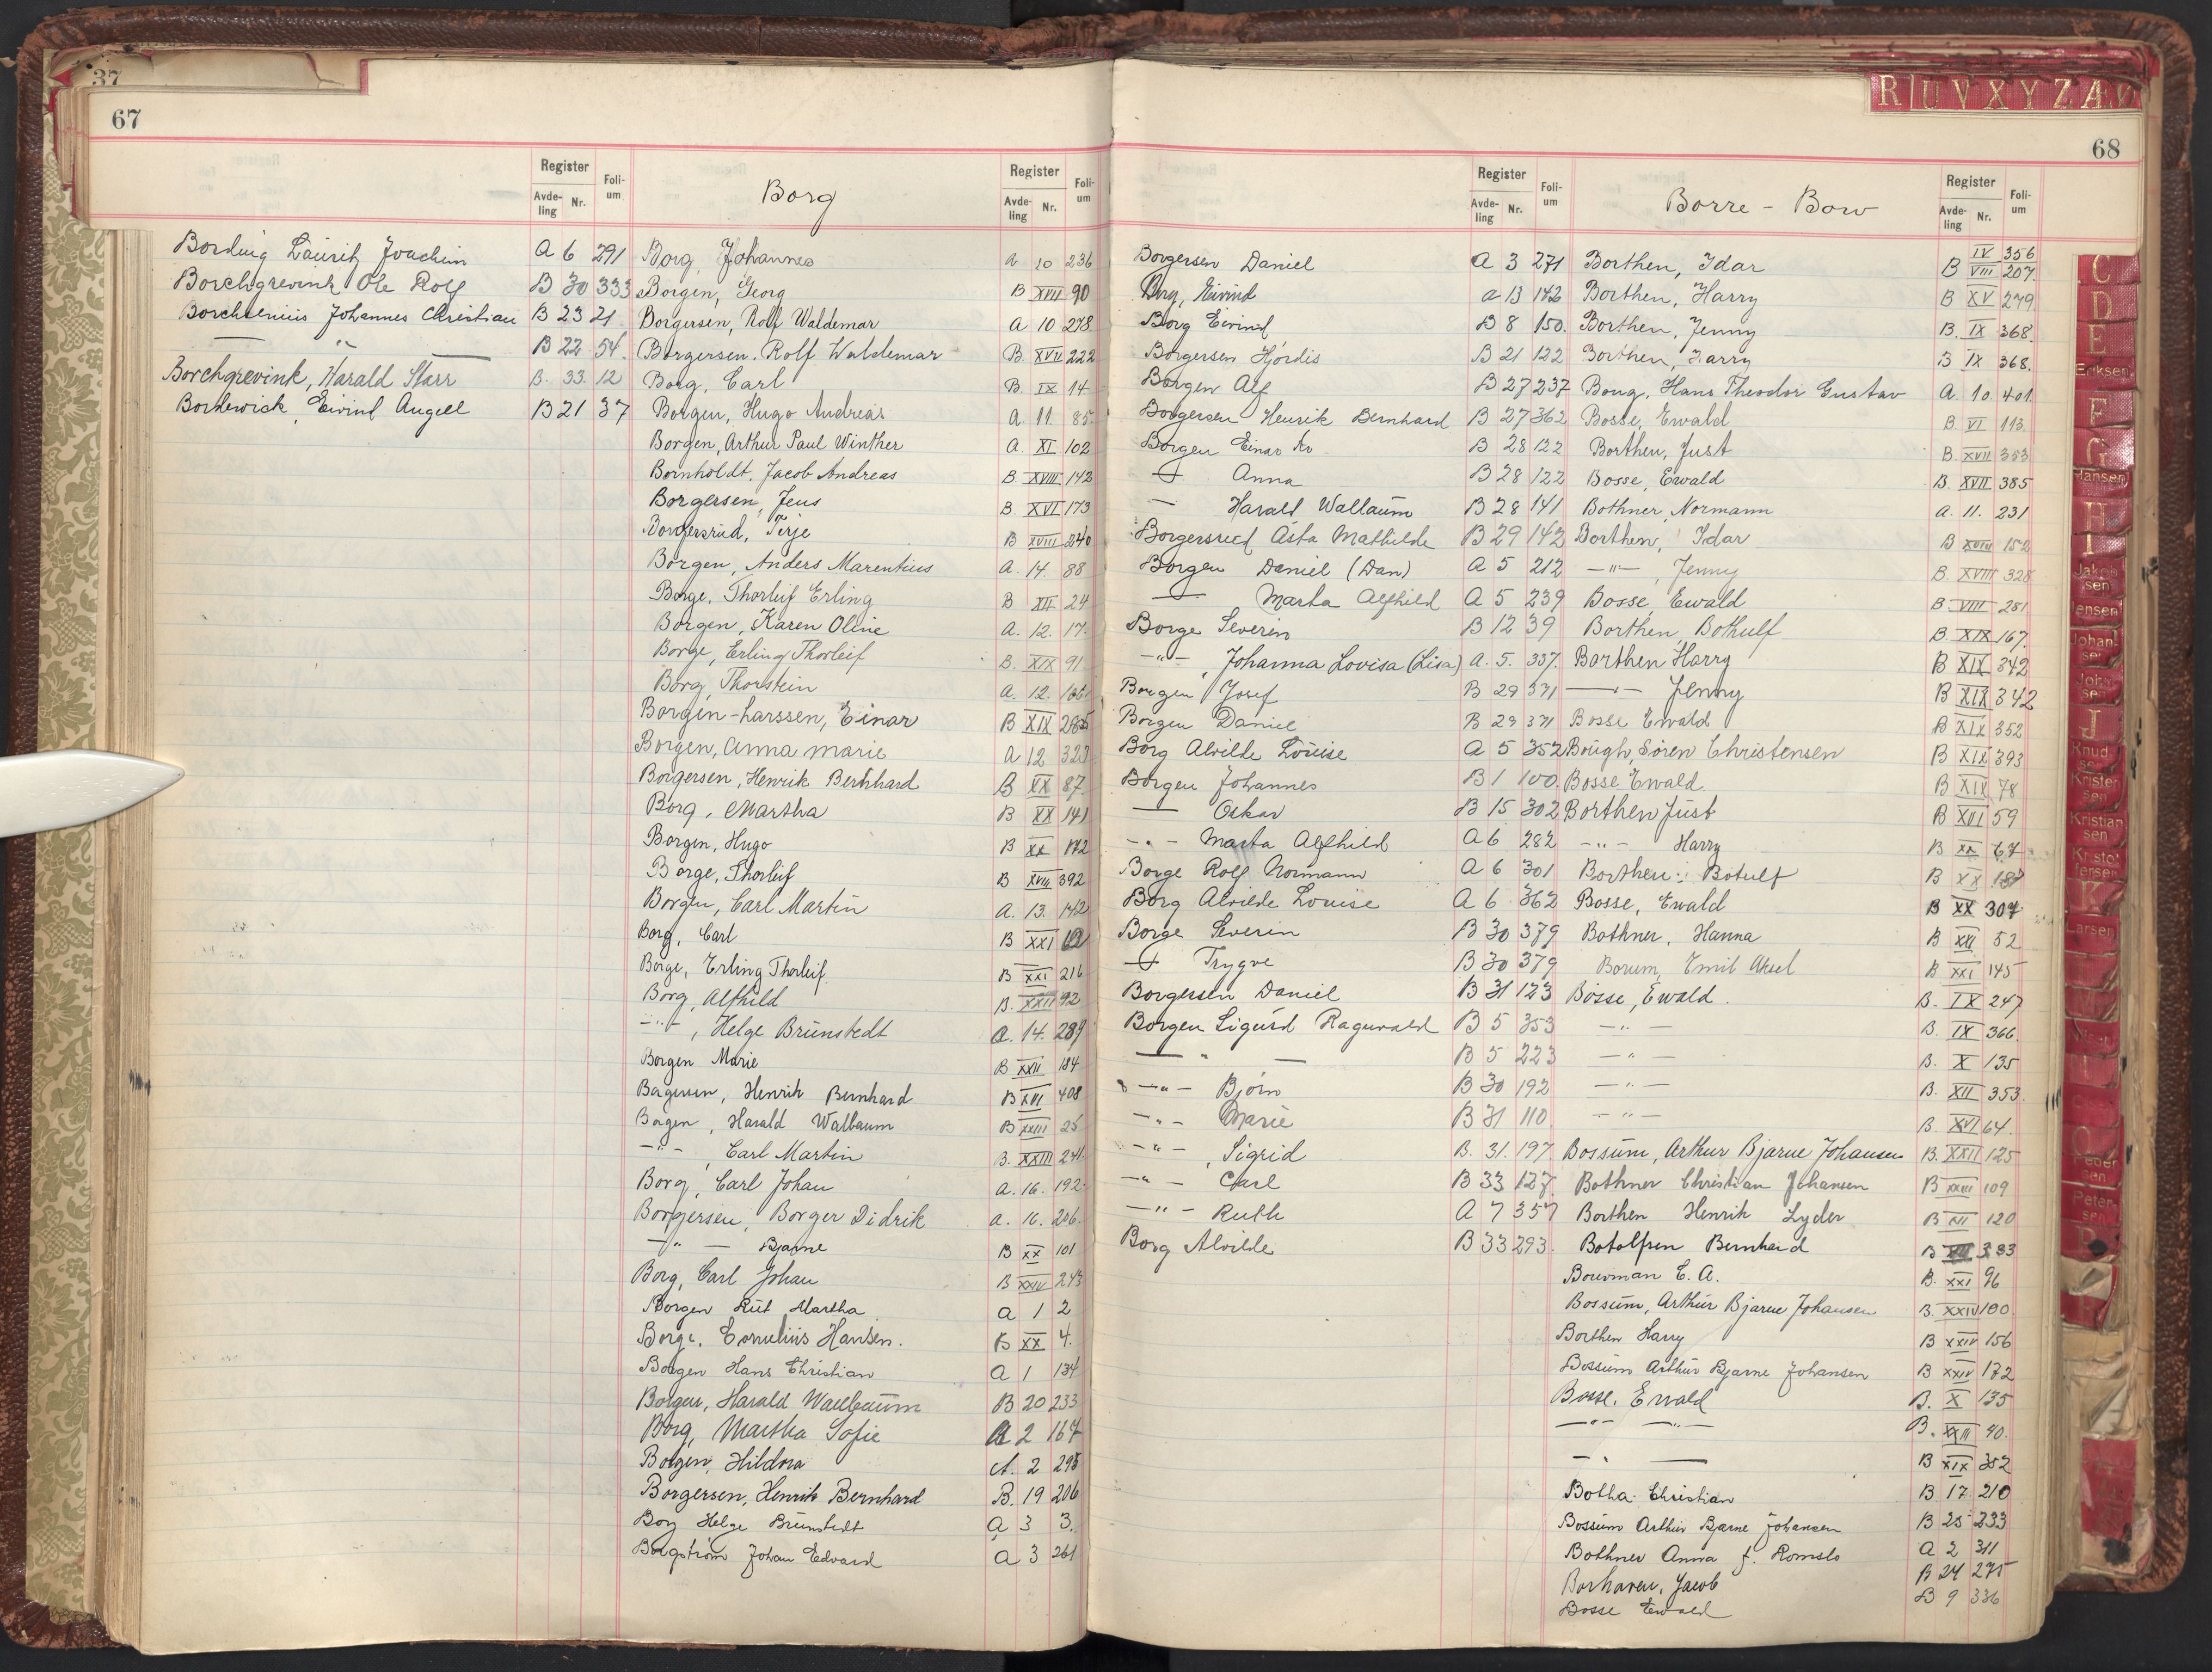 37
67
Register
Avde-ling
Nr.
Foli-um
Bording Lauritz Joachim A 6 291
Borchgrevink Ole Rolf B 30 333
Borchsenius Johannes Christian B 23 21
— " — B 22 54
Borchgrevink, Harald Starr B. 33. 12
Bordewick, Eivind Angell B 21 37
Borg
Register
Avde-ling
Nr.
Foli-um
Borg, Johannes A 10 236
Borgen, Georg B XVII 90
Borgersen, Rolf Waldemar A 10 278
Borgersen, Rolf Waldemar B. XVII 222
Borg, Carl B. IX 14
Borgen, Hugo Andreas A. 11. 85
Borgen, Arthur Paul Winther A. XI 102
Bornholdt, Jacob Andreas B. XVIII 142
Borgersen, Jens B. XVI 173
Borgersrud, Terje B XVIII 240
Borgen, Anders Marentius A. 14. 88
Borge, Thorleif Erling B XII 24
Borgen, Karen Oline A. 12. 17.
Borge, Erling Thorleif B. XIX 91
Borg, Thorstein A. 12.
Borgen-Larssen, Einar B XIX
Borgen, Anna Marie A 12 323
Borgersen, Henrik Bernhard B XX 87.
Borg, Martha B XX 141
Borgen, Hugo B XX 172
Borge, Thorleif B XVIII 392
Borgen, Carl Martin A. 13. 142
Borg, Carl B XXI
Borge, Erling Thorleif B XXI 216
Borg, Alfhild B. XXII 92
— " —, Helge Brünstedt A. 14. 289
Borgen Marie B XXII 184
Borgersen, Henrik Bernhard B XVI 408
Borgen, Harald Walbaum B XXIII 25
— " —, Carl Martin B. XXIII 241
Borg, Carl Johan A. 16. 192
Borgersen, Borger Didrik A. 16. 206.
— " — Bjarne B XX 101
Borg, Carl Johan B XXIV 243
Borgen Rut Martha A 1 2
Borge, Cornelius Hansen. B XX 4.
Borgen Hans Christian A 1 134
Borgen, Harald Wallbaum B 20 233
Borg, Martha Sofie A 2 167
Borgen, Hildora A. 2 295
Borgersen, Henrik Bernhard B. 19 206
Borg Helge Brünstedt A 3 3.
Borgstrøm Johan Edvard A 3 261
Register
Avde-ling
Nr.
Foli-um
Borgersen Daniel A 3 271
Borg, Eivind A 13 142
Borg Eivind B 8 150.
Borgersen Hjördis B 21 122
Borgen Alf B 27 237
Borgersen Henrik Bernhard B 27 362
Borgen Einar Kr. B 28 122
— Anna B 28 122
— Harald Wallaum B 28 141
Borgersrud Asta Mathilde B 29 142
Borgen Daniel (Dan) A 5 212
— Marta Alfhild A 5 239
Borge Severin B 12 39
— " —, Johanna Lovisa (Lisa) A. 5. 337.
Borgen Josef B 29 371
Borgen Daniel B 29 371
Borg Alvilde Louise A 5 352
Borgen Johannes B 1 100.
— Oskar B 15 302
— " — Marta Alfhild A 6 282
Borge Rolf Normann A 6 301
Borg Alvilde Louise A 6 362
Borge Severin B 30 379
— Trygve B 30 379
Borgersen Daniel B 31 123
Borgen Sigurd Ragnvald B 5 353
— " — B 5 223
— " — Bjørn B 30 192
— " — Marie B 31 110
— " —, Sigrid B. 31. 197
— " — Carl B 33 127.
— " — Ruth A 7 357
Borg Alvilde B 33 293.
68
Borre - Bow
Register
Avde-ling
Nr.
Foli-um
IX 356
Borthen, Idar B VIII 207.
Borthen, Harry B XV 279.
Borthen, Jenny B. IX 368.
Borthen, Harry B IX 368.
Boug, Hans Theodor Gustav A. 10. 401.
Bosse, Ewald B. VI 113.
Borthen, Just B. XVII 353
Bosse, Ewald B. XVII 385
Bothner, Normann A. 11. 231
Borthen, Idar B XVIII 152
— " —, Jenny B. XVIII 328
Bosse, Ewald B. VIII 281
Borthen, Bothulf B. XIX 167.
Borthen Harry B XIX 342
— " — Jenny B XIX 342
Bosse Ewald B XIX 352
Bough, Sören Christensen B XIX 393
Bosse Ewald B XIX 78
Borthen Just B XVI 59
— " — Harry B XX 67
Borthen: Botulf B XX 187
Bosse, Ewald B XX 307
Bothner, Hanna B XII 52
Borum, Emil Aksel B XXI 145
Bosse, Ewald. B. IX 247
— " — B. IX 366.
— " — B. X 135
— " — B. XII 353
— " — B. XVI 64.
Bossum, Arthur Bjarne Johansen B. XXII 125
Bothner Christian Johansen B XXIII 109
Borthen Henrik Lyder B XII 120
Botolfsen Bernhard B 383
Bouwman C. A. B. XXI 96
Bossum, Arthur Bjarne Johansen B. XXIV 100.
Borthen Harry B XXIV 156
Bossum Arthur Bjarne Johansen B XXIV 172
Bosse, Ewald B. X 135
— " — — " — B. XXII 40.
— " — B XIX 352
Botha Christian B 17 210
Bossum Arthur Bjarne Johansen B 25 233
Bothner Anna f. Romslo A 2 311
Borhaven, Jacob B 24 275
Bosse Ewald B 9 336
R U V X Y Z Æ Ø
C
D
E
Eriksen
F
G
Hansen
H
I
Jakobsen
Jensen
Johansen
Johnsen
J
Knudsen
Kristensen
Kristiansen
Kristoffersen
K
Larsen
Pedersen
Petersen